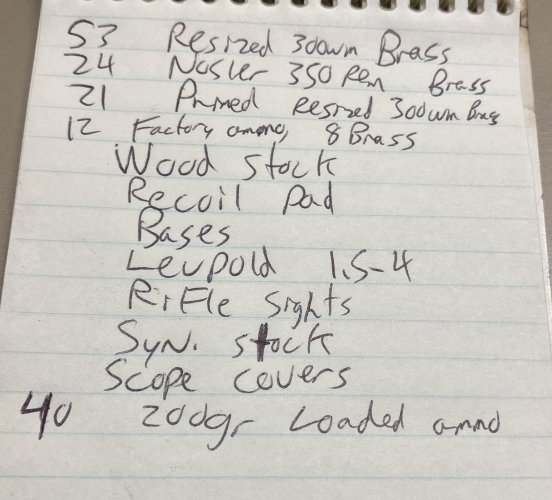 53 Resized 300wm Brass
24 Nosler 350 Rem Brass
21 Primed resized 300wm Brass
12 Factory ammo, 8 Brass
Wood stock
Recoil Pad
Bases
Leupold 1.5-4
Rifle sights
Syn. stock
Scope covers
40 200gr Loaded ammo